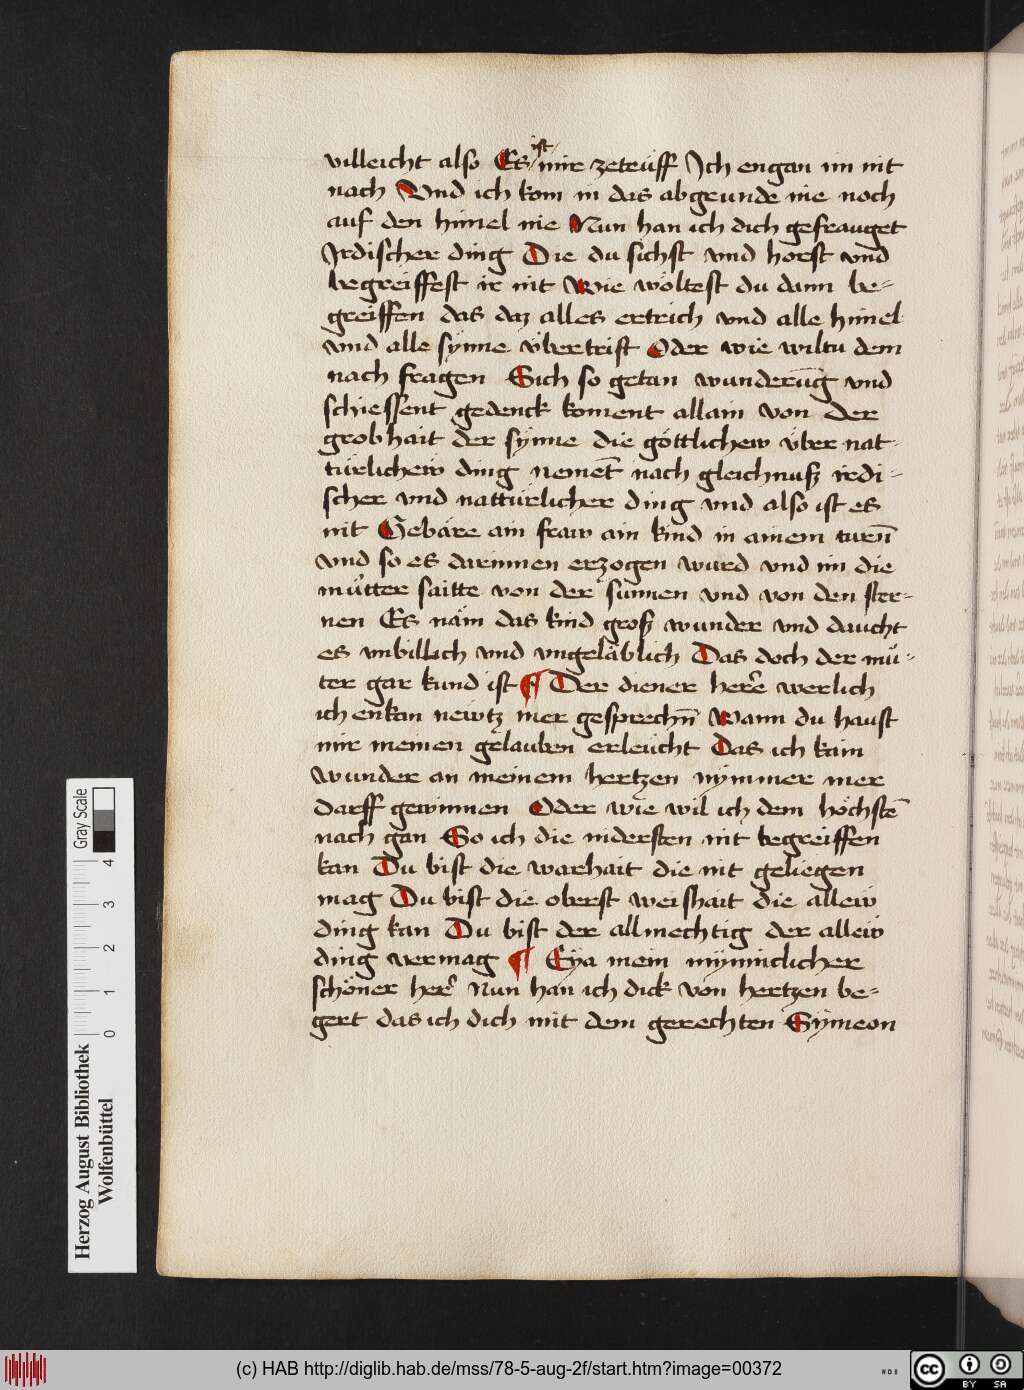 villeicht also Es ist mir zeteüff Jch engan im nit
nach Vnd ich kom in das abgrunde nie noch
auf den himel nie Nun han ich dich gefrauget
Jrdischer ding Die du sichst vnd horst vnd
begreiffest ir nit Wie wöltest du dann be-
greiffen das daz alles ertrich vnd alle himel
vnd alle sÿnne v̈bertrift Oder wie wiltu dem
nach fragen Sich so getan wunderūg vnd
schiessent gedenck koment allain von der
grobhait der sÿnne die göttlichew v̈ber nat-
türlichew ding nemet nach gleichnuß irdi-
scher vnd nattürlicher ding vnd also ist es
nit Gebäre ain fraw ain kind in ainem turn̄
vnd so es darinnen erzogen wurd vnd im die
mu̇tter saitte von der sunnen vnd von den ster-
nen Es näm das kind groß wunder vnd daucht
es vnbillich vnd vngeläblich Das doch der mü-
ter gar kund ist ¶ Der diener herre werlich
ich enkan newtz mer gesprechn̄ Wann du haust
mir meinen gelauben erleücht Das ich kain
wunder an meinem hertzen nÿmmer mer
darff gewinnen Oder wie wil ich dem höchstē
nach gan So ich die nidersten nit begreiffen
kan Du bist die warhait die nit geliegen
mag Du bist die oberst weishait die allew
ding kan Du bist der allmechtig der allew
ding vermag ¶ Eÿa mein mÿnniclicher
schöner herr Nun han ich dick von hertzen be-
gert das ich dich mit dem gerechten Sÿmeon
Gray Scale
0 1 2 3 4
Herzog August Bibliothek
Wolfenbüttel
(c) HAB http://diglib.hab.de/mss/78-5-aug-2f/start.htm?image=00372
WDB
CC BY SA